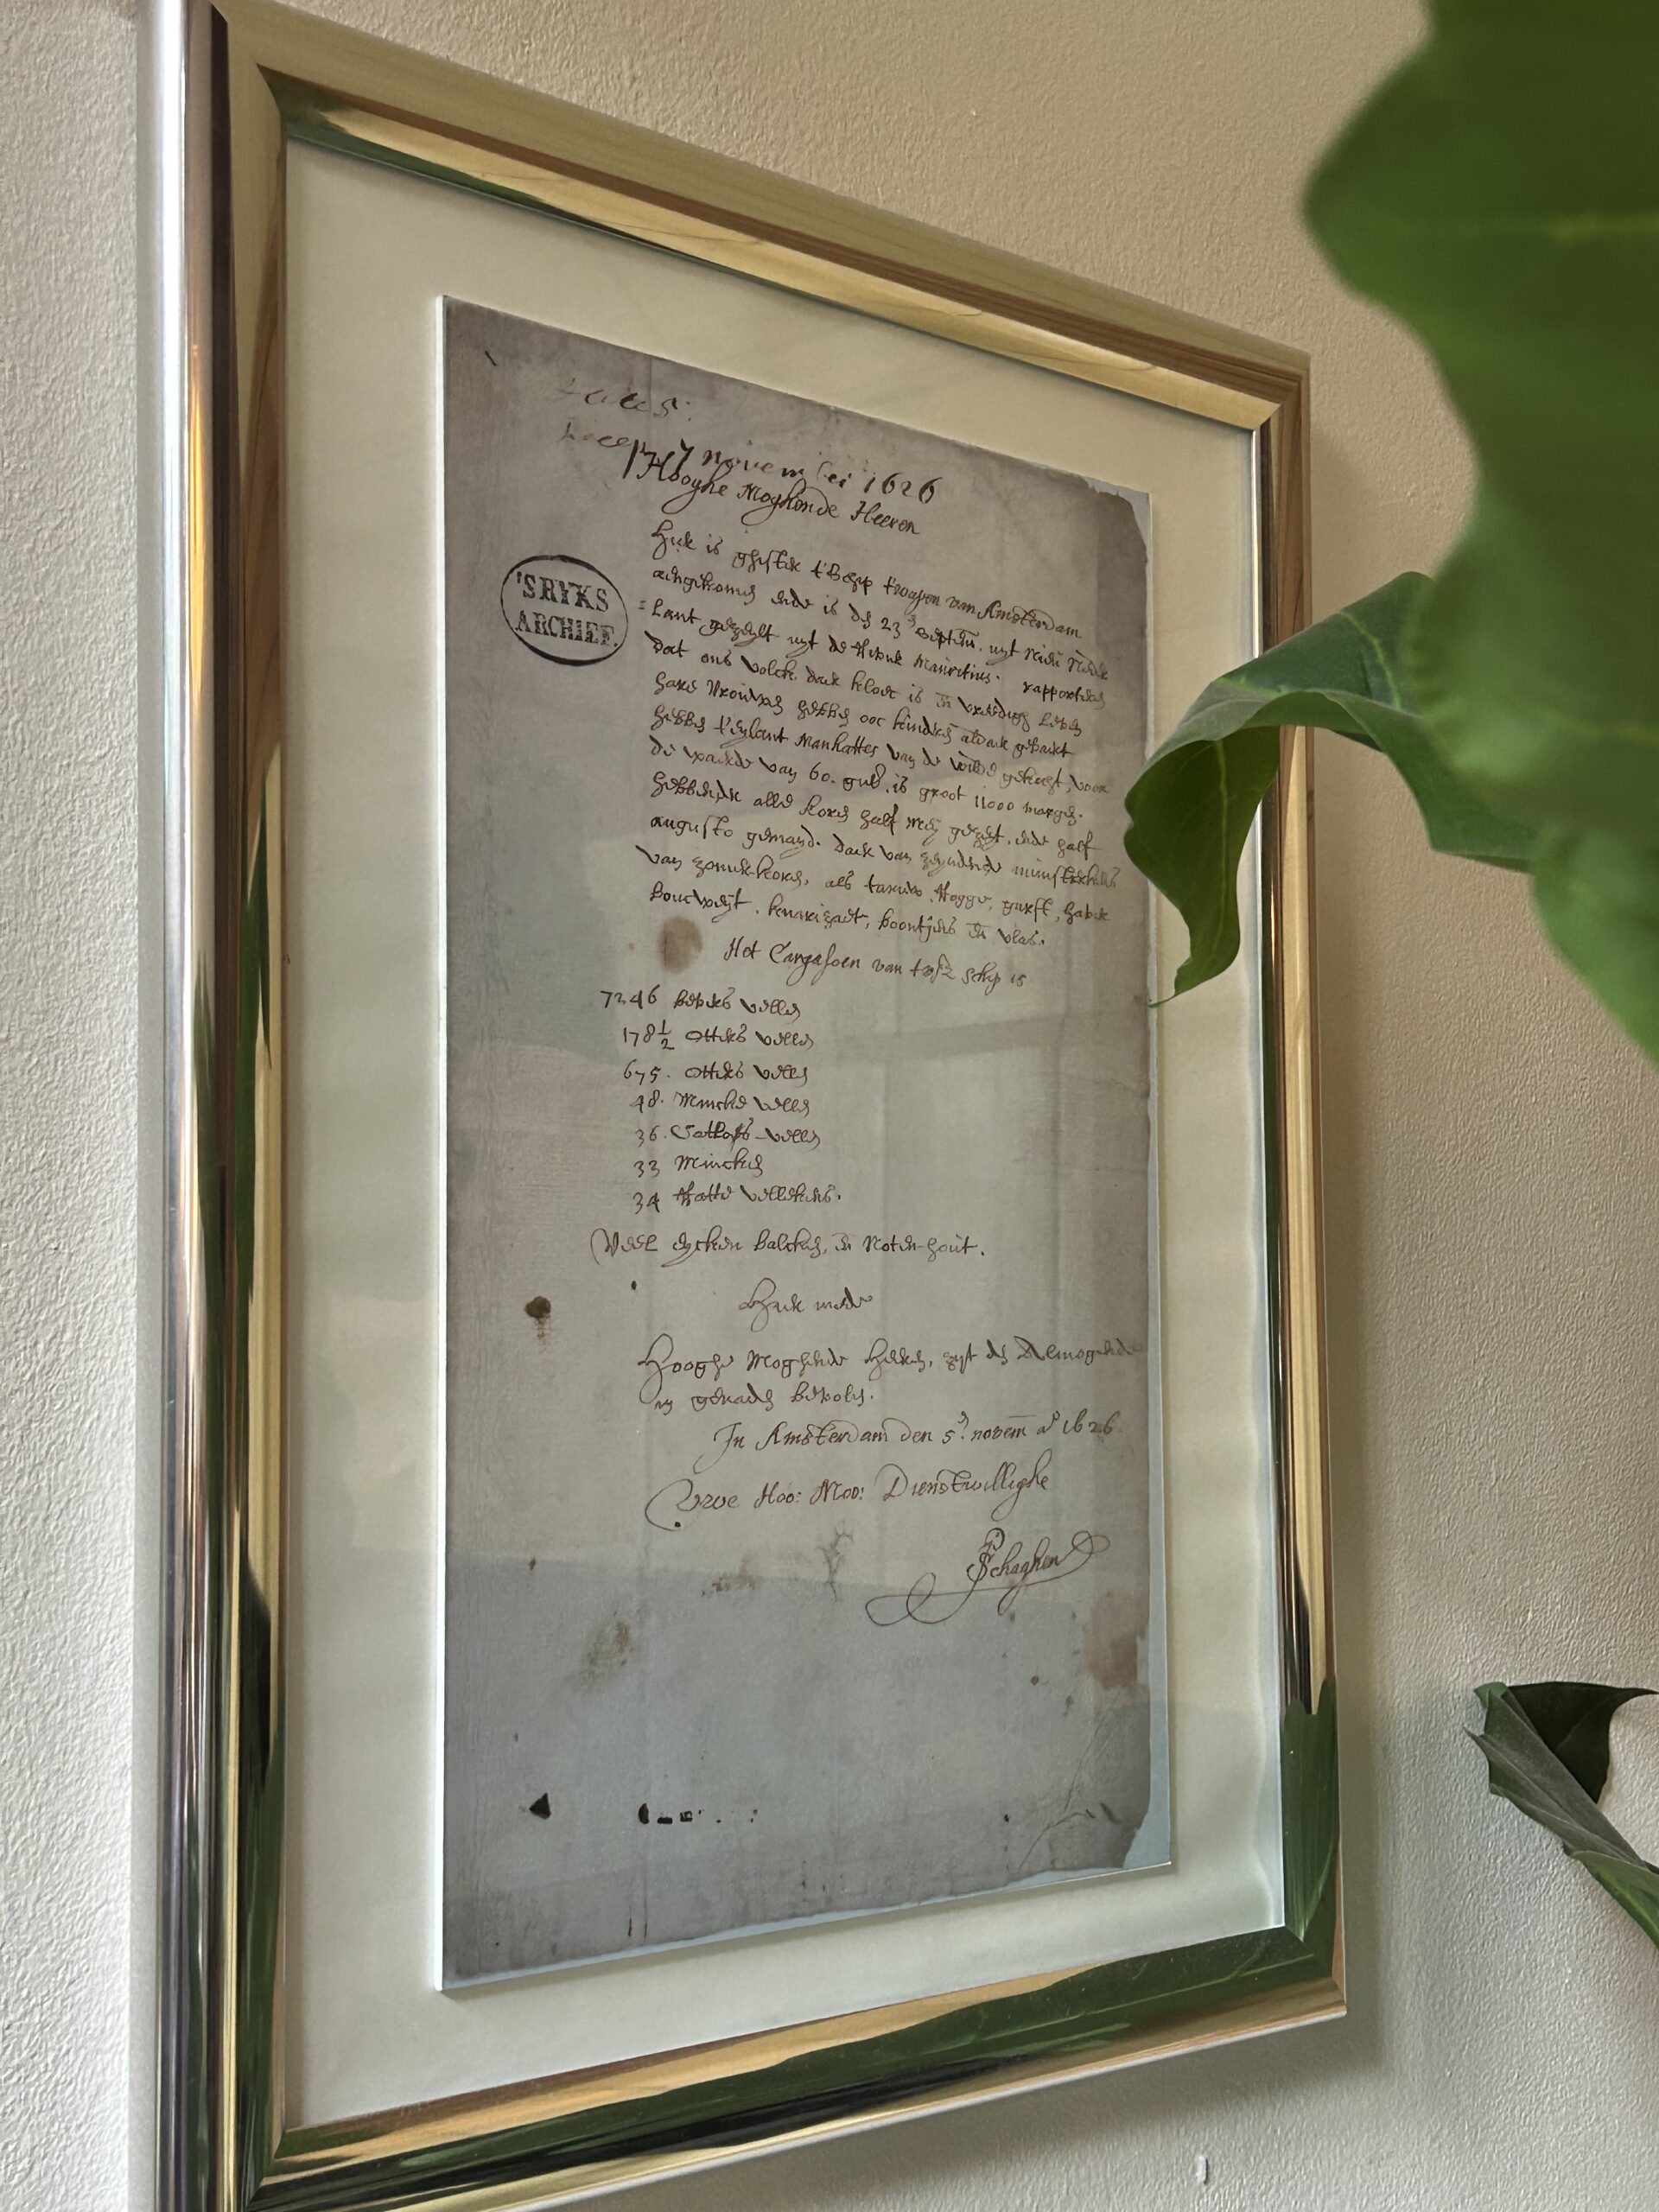 Recep. 7 november 1626
Hooghe Moghende Heeren
Hier is ghister t'Schip t'wapen van Amsterdam
aengekomen ende is den 23en septem. uyt Nieu Neder
'SRYKS
ARCHIEF.
=Lant gezeylt uyt de Rivier Mauritius. rapporteren
dat ons volck daer kloec is en vreedigh leven
hare Vrouwen hebben ooc kinderen aldaer gebaert
hebben t'eylant Manhattes van de wilde gekocht, voor
de waerde van 60. guld. is groot 11000 morgen.
hebbende alle koren half Mey gezeyt, ende half
augusto gemayd. daer van zeynden munsterkens
van zomer-koren, als tarwe, Rogge, garst, haver
boucweyt, kanarizaet, boontjens en vlas.
Het Cargasoen van tvsz schip is
7246 bevers vellen
178½ otters vellen
675. otters vellen
48. Mincke vellen
36. Catloes-vellen
33 Mincken
34 Ratte vellekens.
Veel eycken balcken, en Noten-hout.
Hier mede
Hooghe Moghende Heeren, zyt den Almogende
in genaden bevolen.
In Amsterdam den 5en novem ao 1626.
Uwe Hoo: Moo: Dienstwillighe
P Schaghen